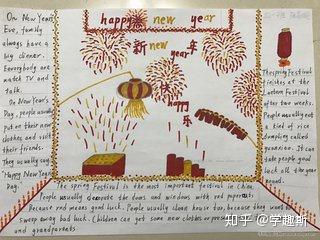 happy new year
新 new 年
year
快
happy
乐
On New Years
Eve, family
always have a
big dinner.
Everybody are
watch TV and
talk.
On New Year's
Day, people usually
put on their new
clothes and visit
their friends.
They usually say:
"Happy New Year's
Day.
The spring Festival
finishes at the
Lantern Festival
after two weeks.
People usually eat
a kind of rice
dumpling called
yuanxiao. It can
take people good
luck all the year
round.
The spring Festival is the most important festival in China.
People usually decorate the doors and windows with red paper.
Because red means good luck. People usually clean house too, because they want to
sweep away bad luck. Children can get some new clothes or presents
and grandparents
知乎 @学趣斯